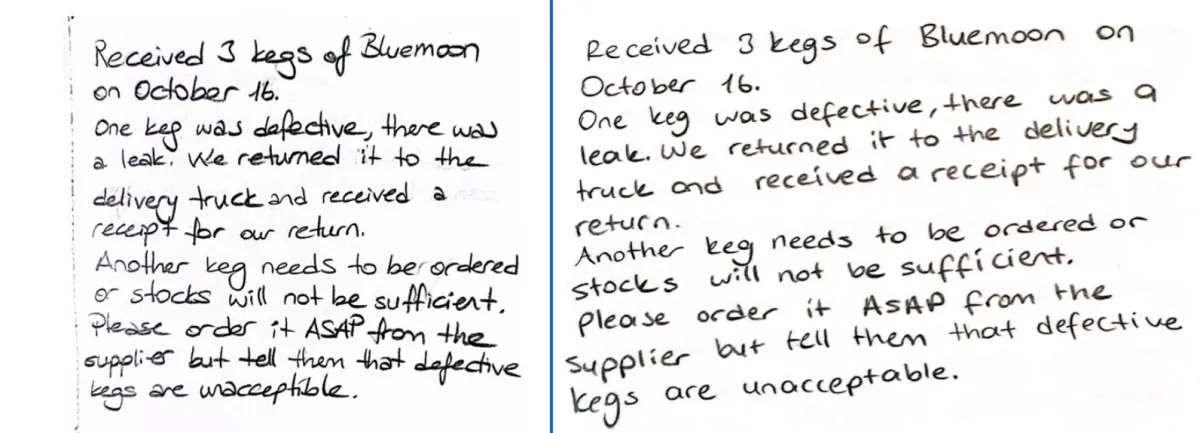 Received 3 kegs of Bluemoon
on October 16.
One keg was defective, there was
a leak. We returned it to the
delivery truck and received a
receipt for our return.
Another keg needs to be ordered
or stocks will not be sufficient.
Please order it ASAP from the
supplier but tell them that defective
kegs are unacceptible.
Received 3 kegs of Bluemoon on
October 16.
One keg was defective, there was a
leak. We returned it to the delivery
truck and received a receipt for our
return.
Another keg needs to be ordered or
stocks will not be sufficient.
Please order it ASAP from the
supplier but tell them that defective
kegs are unacceptable.